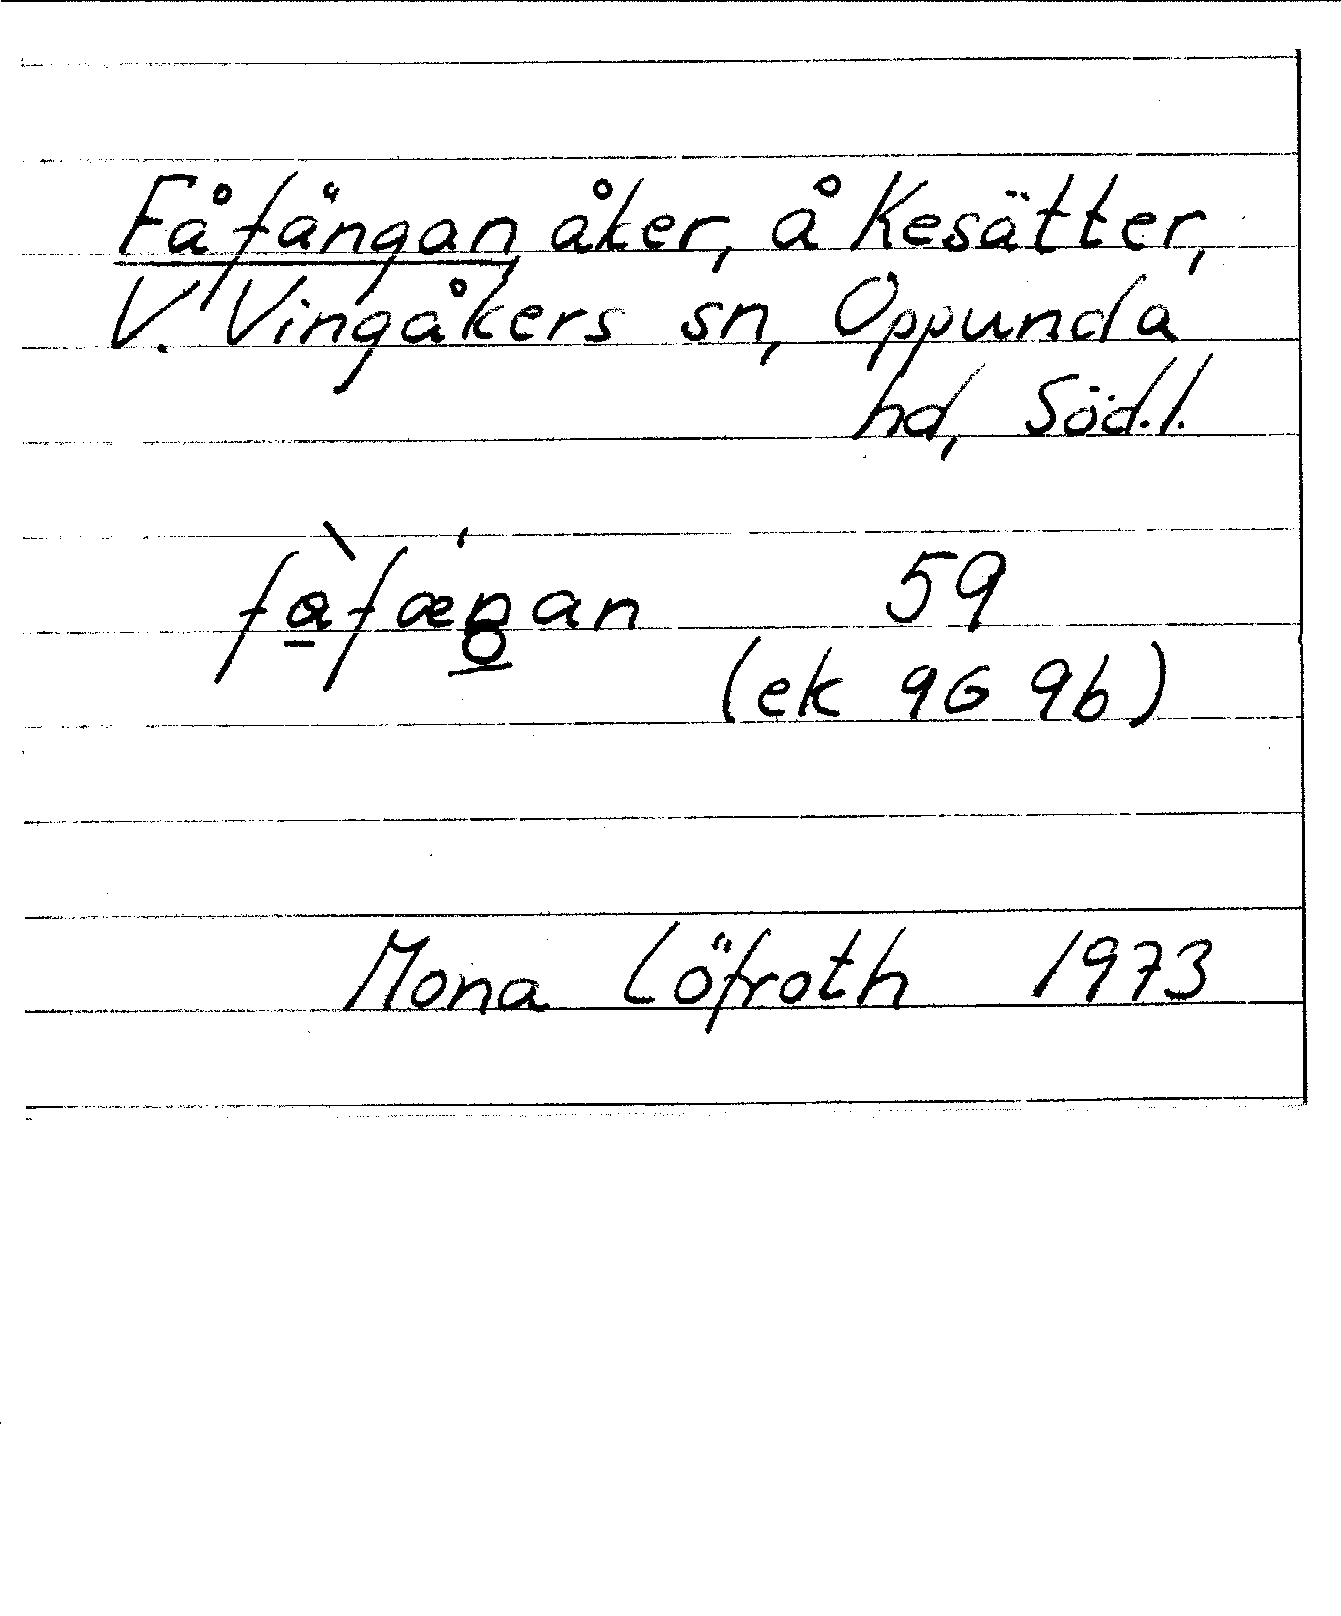 Fåfängan, åker, å Kesätter,
V. Vingåkers sn, Oppunda
hd, Söd.l.
fàfæŋan 59
(ek 9G 9b)
Mona Löfroth 1973